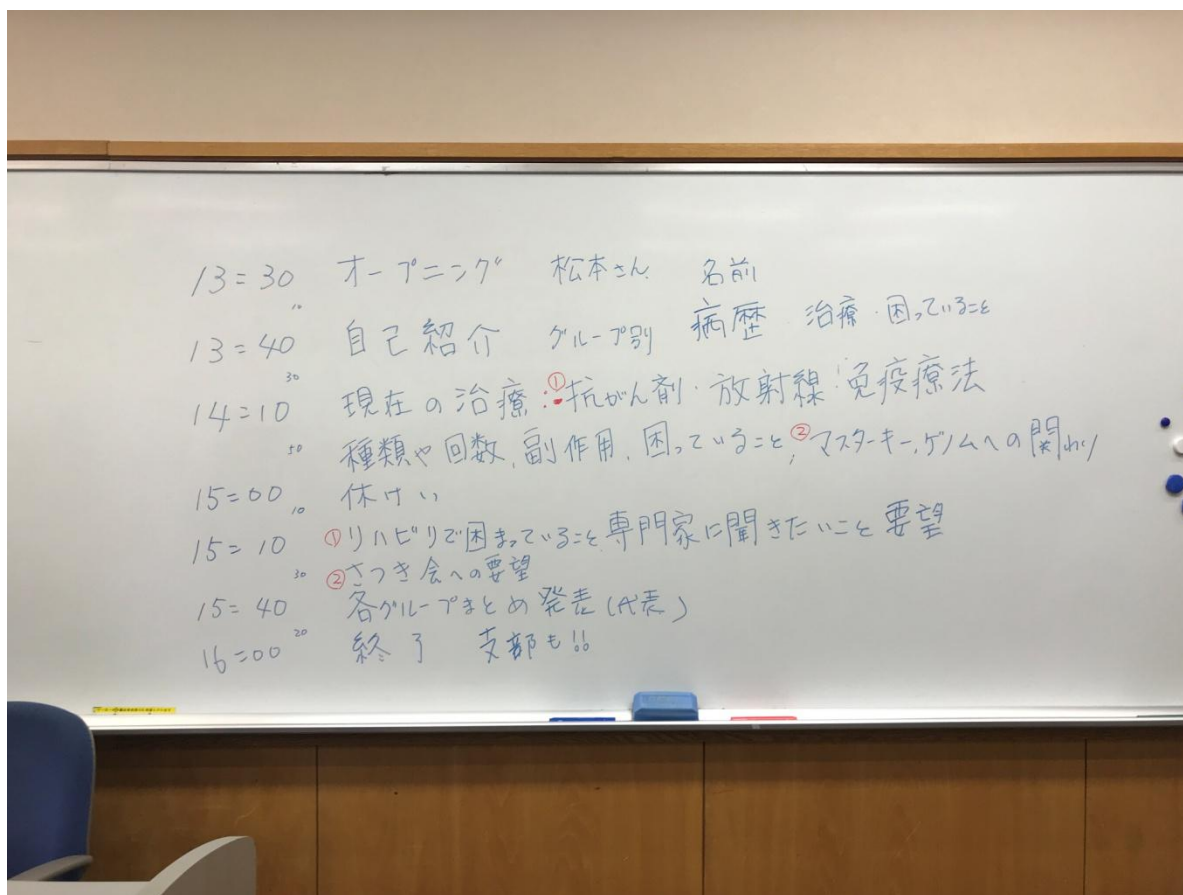 13=30 オープニング 松本さん 名前
10
13=40 自己紹介 グループ別 病歴 治療・困っていること
30
14=10 現在の治療:①抗がん剤・放射線・免疫療法
50 種類や回数、副作用、困っていること、②マスターキー、ゲノムへの関わり
15=00 休けい
10
15=10 ①リハビリで困まっていること、専門家に聞きたいこと 要望
30 ②さつき会への要望
15=40 各グループまとめ発表(代表)
20
16=00 終了 支部も!!